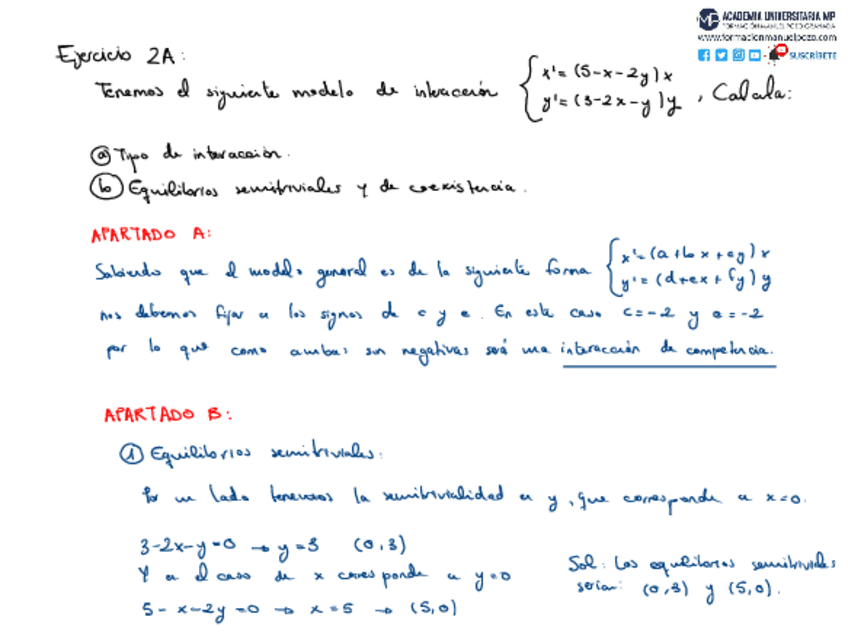 ACADEMIA UNIVERSITARIA MP
FORMACIÓN MANUEL POZO GRANADA
www.formacionmanuelpozo.com
SUSCRÍBETE
Ejercicio 2A:
Tenemos el siguiente modelo de interacción { x' = (5-x-2y)x
y' = (3-2x-y)y , Calcula:
ⓐ Tipo de interacción.
ⓑ Equilibrios semitriviales y de coexistencia.
APARTADO A:
Sabiendo que el modelo general es de la siguiente forma { x' = (a+bx+cy)x
y' = (d+ex+fy)y
nos debemos fijar en los signos de c y e. En este caso c=-2 y e=-2
por lo que como ambas son negativas será una interacción de competencia.
APARTADO B:
① Equilibrios semitriviales:
Por un lado tenemos la semitrivialidad en y, que corresponde a x=0.
3-2x-y=0 → y=3 (0,3)
Y en el caso de x corresponde a y=0
5-x-2y=0 → x=5 → (5,0)
Sol: Los equilibrios semitriviales
serían: (0,3) y (5,0).